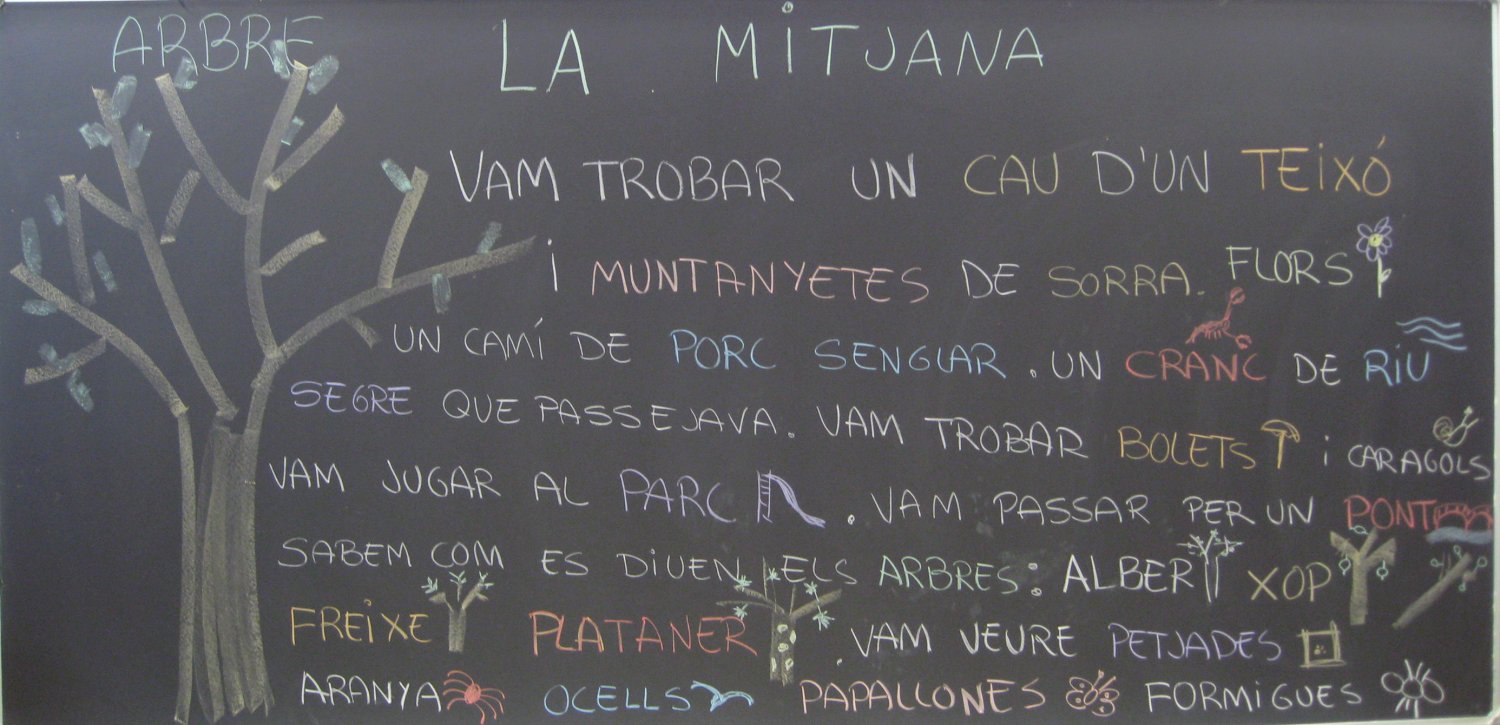 ARBRE
LA MiTJANA
VAM TROBAR UN CAU D'UN TEiXÓ
i MUNTANYETES DE SORRA. FLORS
UN CAMÍ DE PORC SENGLAR. UN CRANC DE RiU
SEGRE QUE PASSEJAVA. VAM TROBAR BOLETS i CARAGOLS
VAM JUGAR AL PARC. VAM PASSAR PER UN PONT
SABEM COM ES DiUEN ELS ARBRES: ALBER XOP
FREiXE PLATANER. VAM VEURE PETJADES
ARANYA OCELLS PAPALLONES FORMiGUES